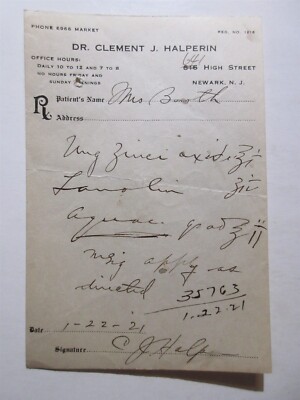 PHONE 6966 MARKET
REG. NO. 1218
DR. CLEMENT J. HALPERIN
OFFICE HOURS:
DAILY 10 TO 12 AND 7 TO 8
NO HOURS FRIDAY AND
SUNDAY EVENINGS
641
816 HIGH STREET
NEWARK, N. J.
℞ Patient's Name Mrs Booth
Address
Ung Zinci oxidi ʒii
Lanolin ʒii
Aquae
apply as
directed
35763
1-22-21
Date 1-22-21
Signature C J Halp